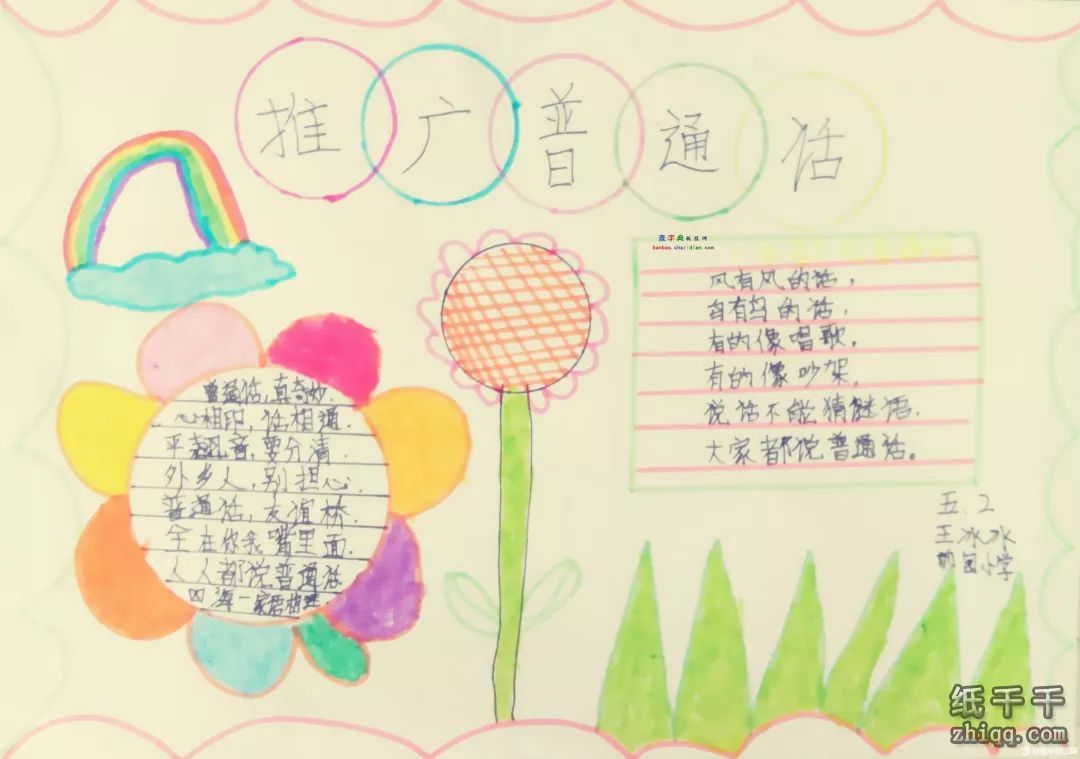 推广普通话
查字典板报网
banbao.chazidian.com
风有风的话，
鸟有鸟的话，
有的像唱歌，
有的像吵架，
说话不能猜谜语，
大家都说普通话。
普通话，真奇妙，
心相印，话相通，
平翘舌音，要分清，
外乡人，别担心，
普通话，友谊桥，
全在你我嘴里面，
人人都说普通话
四海一家
五.2
王冰冰
小学
纸干干
zhiqq.com